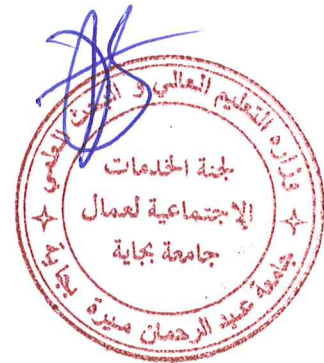 وزارة التعليم العالي و البحث العلمي
لجنة الخدمات
الاجتماعية لعمال
جامعة بجاية
جامعة عبد الرحمان ميرة بجاية